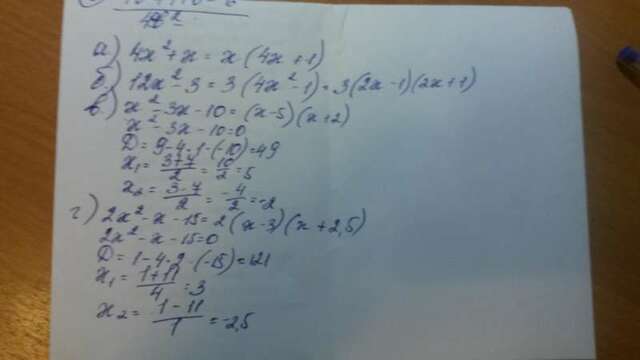 а) 4x² + x = x (4x + 1)
б) 12x² - 3 = 3 (4x² - 1) = 3(2x - 1)(2x + 1)
в) x² - 3x - 10 = (x - 5)(x + 2)
x² - 3x - 10 = 0
D = 9 - 4 · 1 · (-10) = 49
x₁ = (3+7)/2 = 10/2 = 5
x₂ = (3-7)/2 = -4/2 = -2
г) 2x² - x - 15 = 2 (x - 3)(x + 2,5)
2x² - x - 15 = 0
D = 1 - 4 · 2 · (-15) = 121
x₁ = (1+11)/4 = 3
x₂ = (1-11)/1 = -2,5